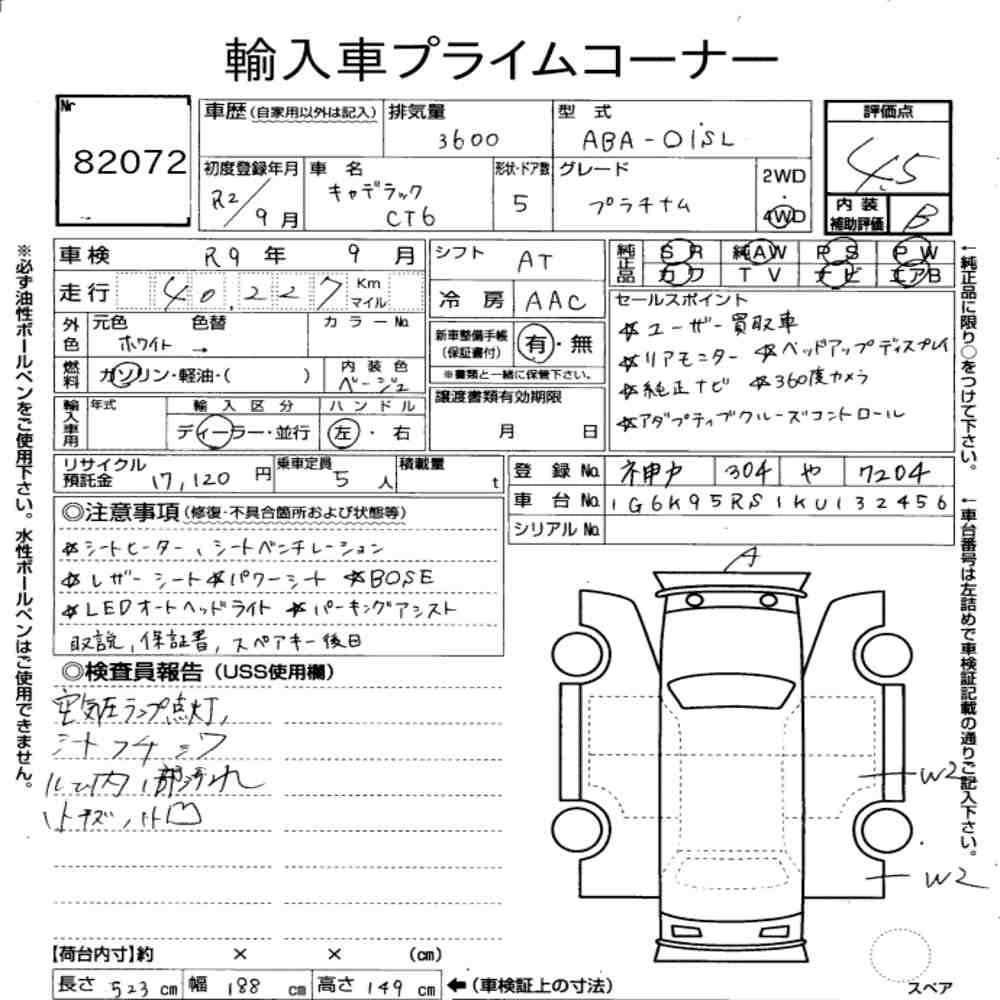 輸入車プライムコーナー
Nr
82072
車歴(自家用以外は記入)
排気量
3600
型式
ABA-O1SL
評価点
4.5
初度登録年月
R2/9月
車名
キャデラック
CT6
形状・ドア数
5
グレード
プラチナム
2WD
4WD
内装
補助評価
B
車検 R9年 9月
シフト AT
純正品 SR 純AW PS PW
カワ TV ナビ エアB
走行 40,227 Km マイル
冷房 AAC
セールスポイント
☆ユーザー買取車
☆リアモニター ☆ヘッドアップディスプレイ
☆純正ナビ ☆360度カメラ
☆アダプティブクルーズコントロール
外色
元色 色替 カラーNo.
ホワイト →
新車整備手帳
(保証書付)
有・無
※書類と一緒に保管下さい。
燃料
ガソリン・軽油・( )
内装色
ベージュ
譲渡書類有効期限
月 日
輸入車用
年式
輸入区分
ディーラー・並行
ハンドル
左・右
リサイクル
預託金 17,120円
乗車定員
5人
積載量
t
登録No. 神戸 304 や 7204
車台No. 1G6K95RS1KU132456
シリアルNo.
◎注意事項(修復・不具合箇所および状態等)
☆シートヒーター、シートベンチレーション
☆レザーシート☆パワーシート ☆BOSE
☆LEDオートヘッドライト ☆パーキングアシスト
取説,保証書,スペアキー後日
◎検査員報告(USS使用欄)
空気圧ランプ点灯,
シートフチシワ
内 部汚れ
小キズ小凹
A
W2
W2
【荷台内寸】約 × × (cm)
長さ 523cm 幅 188cm 高さ 149cm
←(車検証上の寸法)
スペア
※必ず油性ボールペンをご使用下さい。水性ボールペンはご使用できません。
←純正品に限り○をつけて下さい。
←車台番号は左詰めで車検証記載の通りご記入下さい。